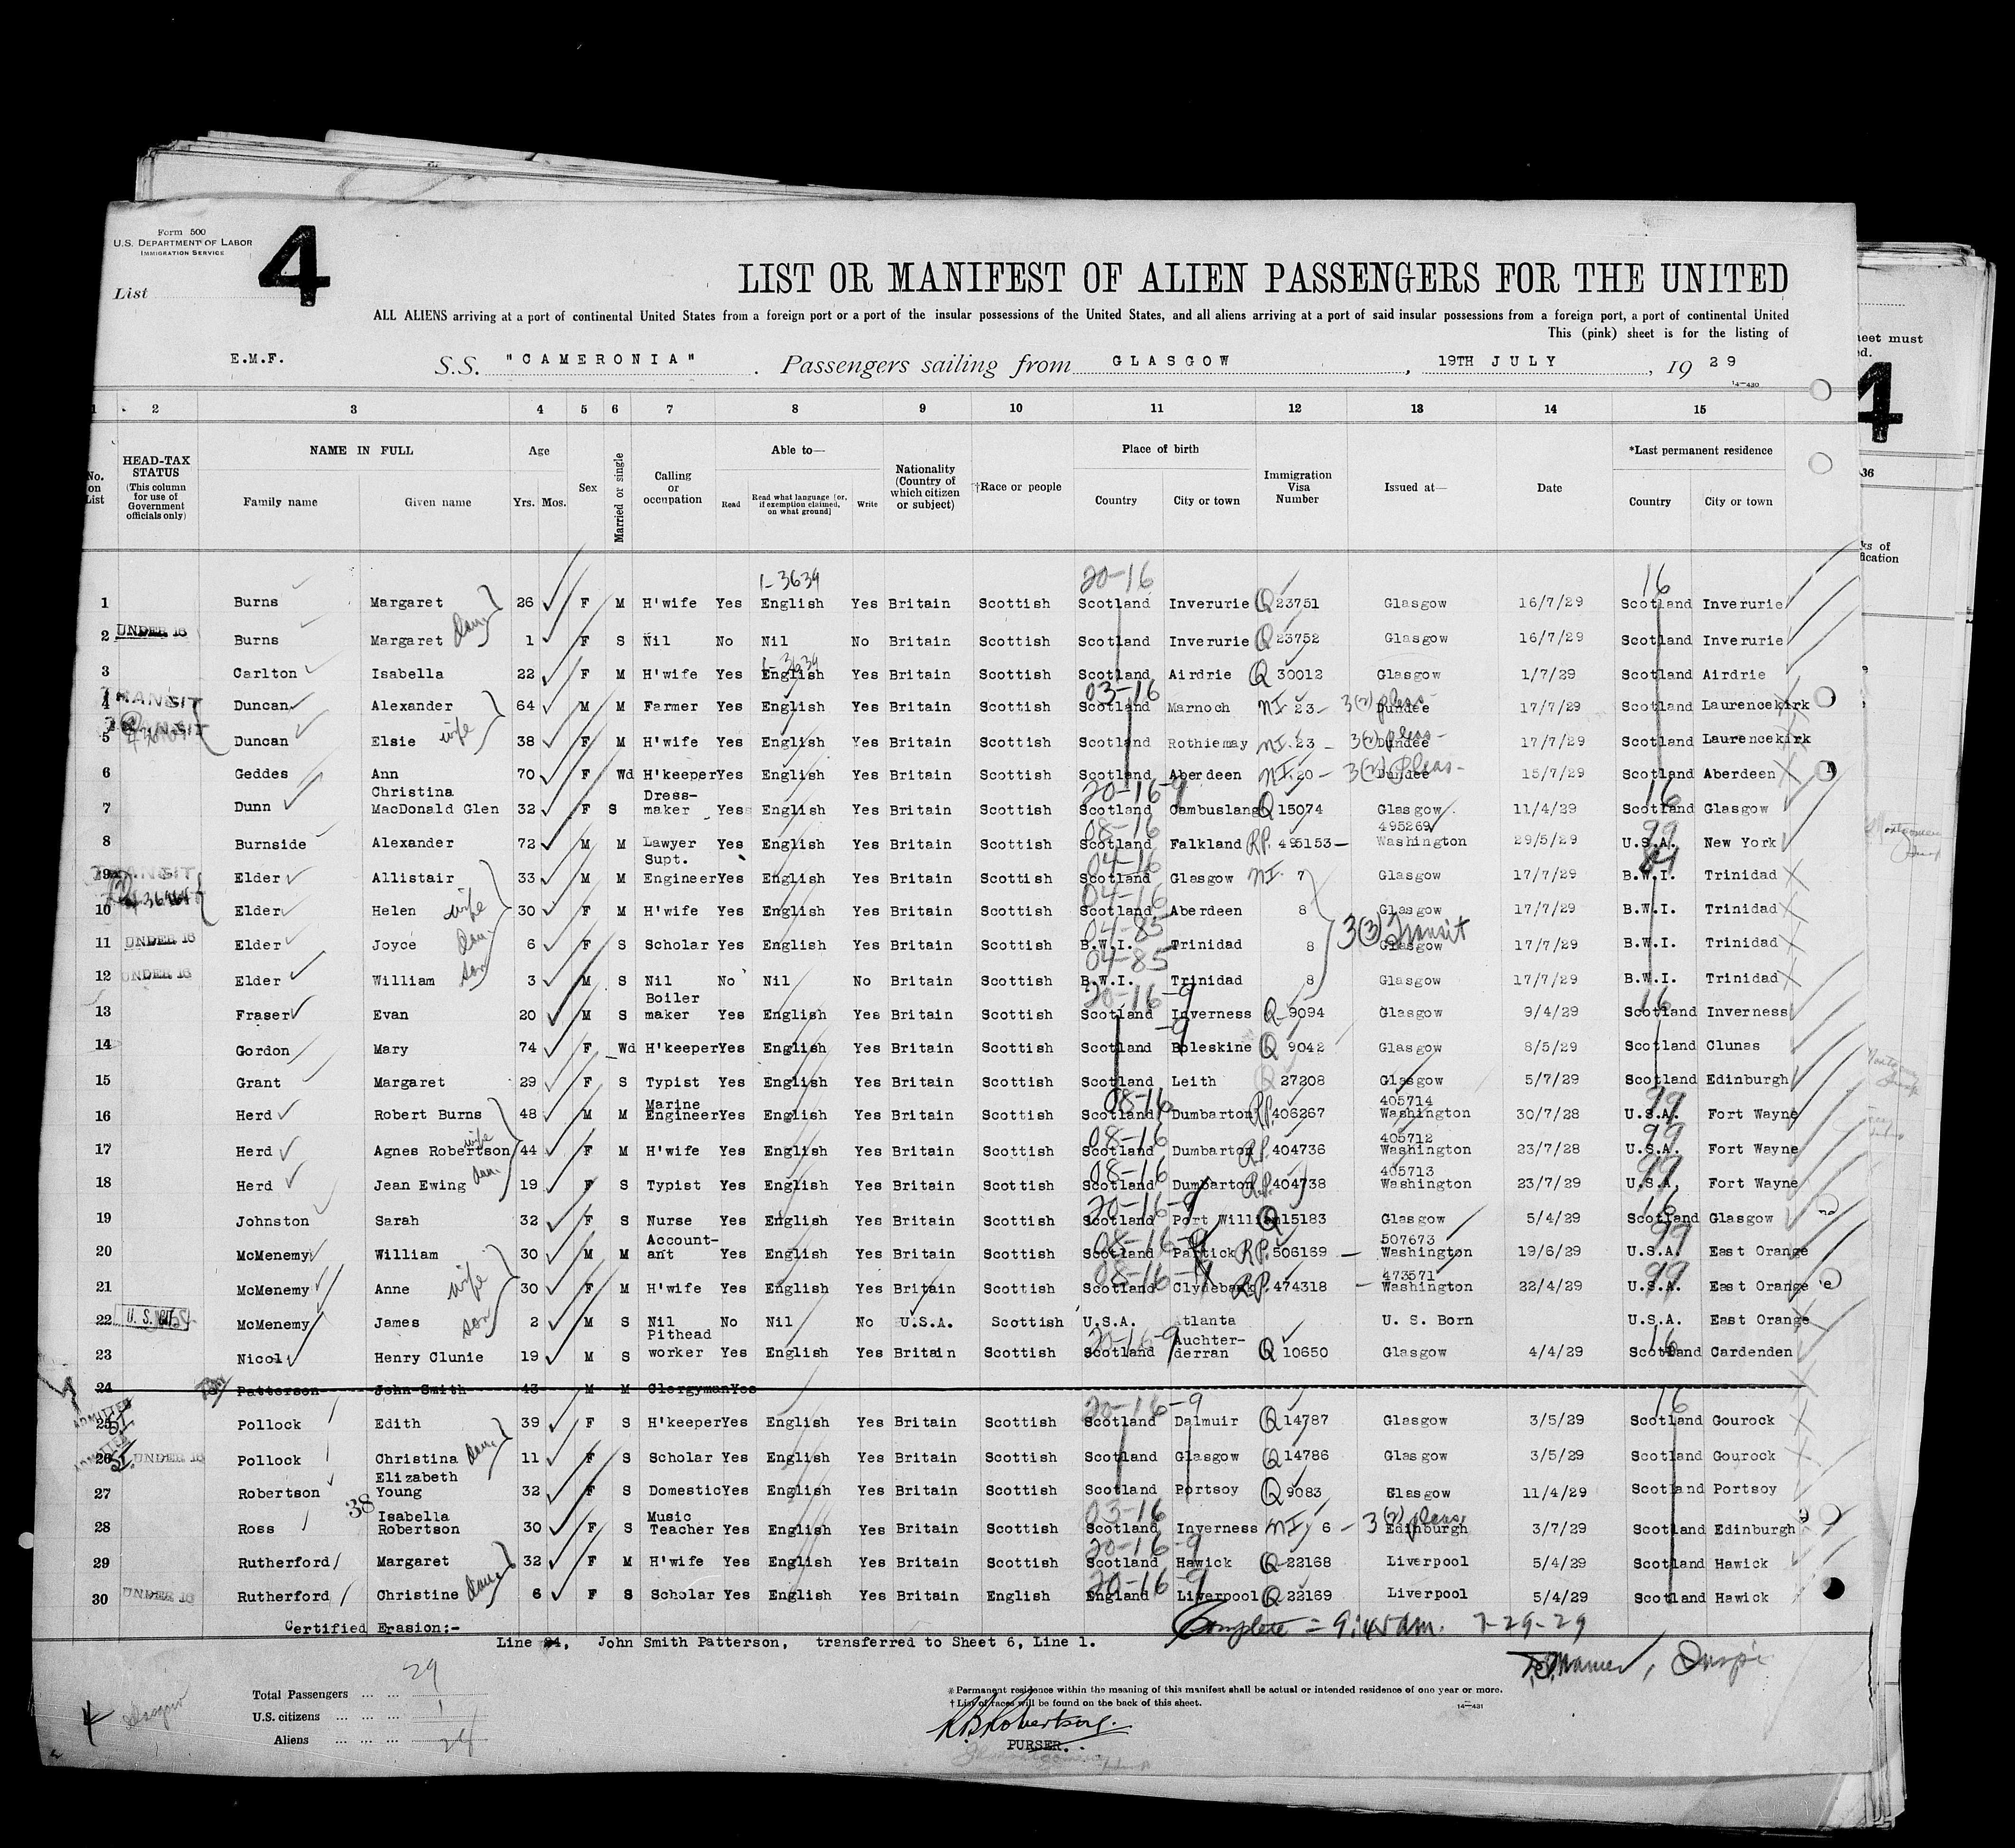 Form 500
U.S. DEPARTMENT OF LABOR
IMMIGRATION SERVICE
4
List
LIST OR MANIFEST OF ALIEN PASSENGERS FOR THE UNITED
ALL ALIENS arriving at a port of continental United States from a foreign port or a port of the insular possessions of the United States, and all aliens arriving at a port of said insular possessions from a foreign port, a port of continental United
This (pink) sheet is for the listing of
E.M.F. S.S. "CAMERONIA". Passengers sailing from GLASGOW, 19TH JULY, 19 29
14—430
1 2 3 4 5 6 7 8 9 10 11 12 13 14 15
No. on List
HEAD-TAX STATUS (This column for use of Government officials only)
NAME IN FULL Family name Given name
Age Yrs. Mos.
Sex
Married or single
Calling or occupation
Able to— Read Read what language [or, if exemption claimed, on what ground] Write
Nationality (Country of which citizen or subject)
†Race or people
Place of birth Country City or town
Immigration Visa Number
Issued at—
Date
*Last permanent residence Country City or town
1-3634 20-16 16
1 Burns Margaret 26 F M H'wife Yes English Yes Britain Scottish Scotland Inverurie Q 23751 Glasgow 16/7/29 Scotland Inverurie
2 UNDER 16 Burns Margaret dau. 1 F S Nil No Nil No Britain Scottish Scotland Inverurie Q 23752 Glasgow 16/7/29 Scotland Inverurie
1-3634
3 Carlton Isabella 22 F M H'wife Yes English Yes Britain Scottish Scotland Airdrie Q 30012 Glasgow 1/7/29 Scotland Airdrie
03-16
4 TRANSIT Duncan Alexander 64 M M Farmer Yes English Yes Britain Scottish Scotland Marnoch NI 23 3(2) pleas- Dundee 17/7/29 Scotland Laurencekirk
5 TRANSIT Duncan Elsie wife 38 F M H'wife Yes English Yes Britain Scottish Scotland Rothiemay NI. 23 3(2) pleas- Dundee 17/7/29 Scotland Laurencekirk
6 Geddes Ann 70 F Wd H'keeper Yes English Yes Britain Scottish Scotland Aberdeen NI. 20 3(2) Pleas- Dundee 15/7/29 Scotland Aberdeen
Christina Dress- 20-16-9 16
7 Dunn MacDonald Glen 32 F S maker Yes English Yes Britain Scottish Scotland Cambuslang Q 15074 Glasgow 11/4/29 Scotland Glasgow
08-16 495269 99
8 Burnside Alexander 72 M M Lawyer Yes English Yes Britain Scottish Scotland Falkland RP. 495153 Washington 29/5/29 U.S.A. New York
Supt. 04-16
9 TRANSIT Elder Allistair 33 M M Engineer Yes English Yes Britain Scottish Scotland Glasgow NI. 7 Glasgow 17/7/29 B.W.I. Trinidad
04-16
10 Elder Helen wife 30 F M H'wife Yes English Yes Britain Scottish Scotland Aberdeen 8 Glasgow 17/7/29 B.W.I. Trinidad
04-85 3(3) Transit
11 UNDER 16 Elder Joyce dau. 6 F S Scholar Yes English Yes Britain Scottish B.W.I. Trinidad 8 Glasgow 17/7/29 B.W.I. Trinidad
04-85
12 UNDER 16 Elder William son 3 M S Nil No Nil No Britain Scottish B.W.I. Trinidad 8 Glasgow 17/7/29 B.W.I. Trinidad
Boiler 20-16-9 16
13 Fraser Evan 20 M S maker Yes English Yes Britain Scottish Scotland Inverness Q 9094 Glasgow 9/4/29 Scotland Inverness
-9
14 Gordon Mary 74 F Wd H'keeper Yes English Yes Britain Scottish Scotland Boleskine Q 9042 Glasgow 8/5/29 Scotland Clunas
15 Grant Margaret 29 F S Typist Yes English Yes Britain Scottish Scotland Leith Q 27208 Glasgow 5/7/29 Scotland Edinburgh
Marine 08-16 405714 99
16 Herd Robert Burns 48 M M Engineer Yes English Yes Britain Scottish Scotland Dumbarton RP. 406267 Washington 30/7/28 U.S.A. Fort Wayne
wife 08-16 405712 99
17 Herd Agnes Robertson 44 F M H'wife Yes English Yes Britain Scottish Scotland Dumbarton RP. 404736 Washington 23/7/28 U.S.A. Fort Wayne
08-16 405713 99
18 Herd Jean Ewing dau. 19 F S Typist Yes English Yes Britain Scottish Scotland Dumbarton RP. 404738 Washington 23/7/29 U.S.A. Fort Wayne
20-16-9 16
19 Johnston Sarah 32 F S Nurse Yes English Yes Britain Scottish Scotland Port William Q 15183 Glasgow 5/4/29 Scotland Glasgow
Account- 08-16-9 507673 99
20 McMenemy William 30 M M ant Yes English Yes Britain Scottish Scotland Partick RP. 506169 Washington 19/6/29 U.S.A. East Orange
08-16-9 473571 99
21 McMenemy Anne wife 30 F M H'wife Yes English Yes Britain Scottish Scotland Clydebank RP. 474318 Washington 22/4/29 U.S.A. East Orange
22 U.S. CIT. McMenemy James son 2 M S Nil No Nil No U.S.A. Scottish U.S.A. Atlanta U. S. Born U.S.A. East Orange
Pithead 20-16-9 Auchter- 16
23 Nicol Henry Clunie 19 M S worker Yes English Yes Britain Scottish Scotland derran Q 10650 Glasgow 4/4/29 Scotland Cardenden
24 Patterson John Smith 43 M M Clergyman Yes
ADMITTED 20-16-9 16
25 Pollock Edith 39 F S H'keeper Yes English Yes Britain Scottish Scotland Dalmuir Q 14787 Glasgow 3/5/29 Scotland Gourock
ADMITTED
26 UNDER 16 Pollock Christina dau. 11 F S Scholar Yes English Yes Britain Scottish Scotland Glasgow Q 14786 Glasgow 3/5/29 Scotland Gourock
Elizabeth
27 Robertson Young 32 F S Domestic Yes English Yes Britain Scottish Scotland Portsoy Q 9083 Glasgow 11/4/29 Scotland Portsoy
38 Isabella Music 03-16
28 Ross Robertson 30 F S Teacher Yes English Yes Britain Scottish Scotland Inverness NI. 6 3(2) pleas. Edinburgh 3/7/29 Scotland Edinburgh
20-16-9
29 Rutherford Margaret 32 F M H'wife Yes English Yes Britain Scottish Scotland Hawick Q 22168 Liverpool 5/4/29 Scotland Hawick
20-16-9
30 UNDER 16 Rutherford Christine dau. 6 F S Scholar Yes English Yes Britain English England Liverpool Q 22169 Liverpool 5/4/29 Scotland Hawick
Certified Erasion:-
Line 24, John Smith Patterson, transferred to Sheet 6, Line 1.
Complete = 9:45 am. 7-29-29
Total Passengers ... ... 29
U.S. citizens ... ... ... 1
Aliens ... ... ...
Glasgow
*Permanent residence within the meaning of this manifest shall be actual or intended residence of one year or more.
† List of races will be found on the back of this sheet.
14—431
PURSER.
sheet must
4
36